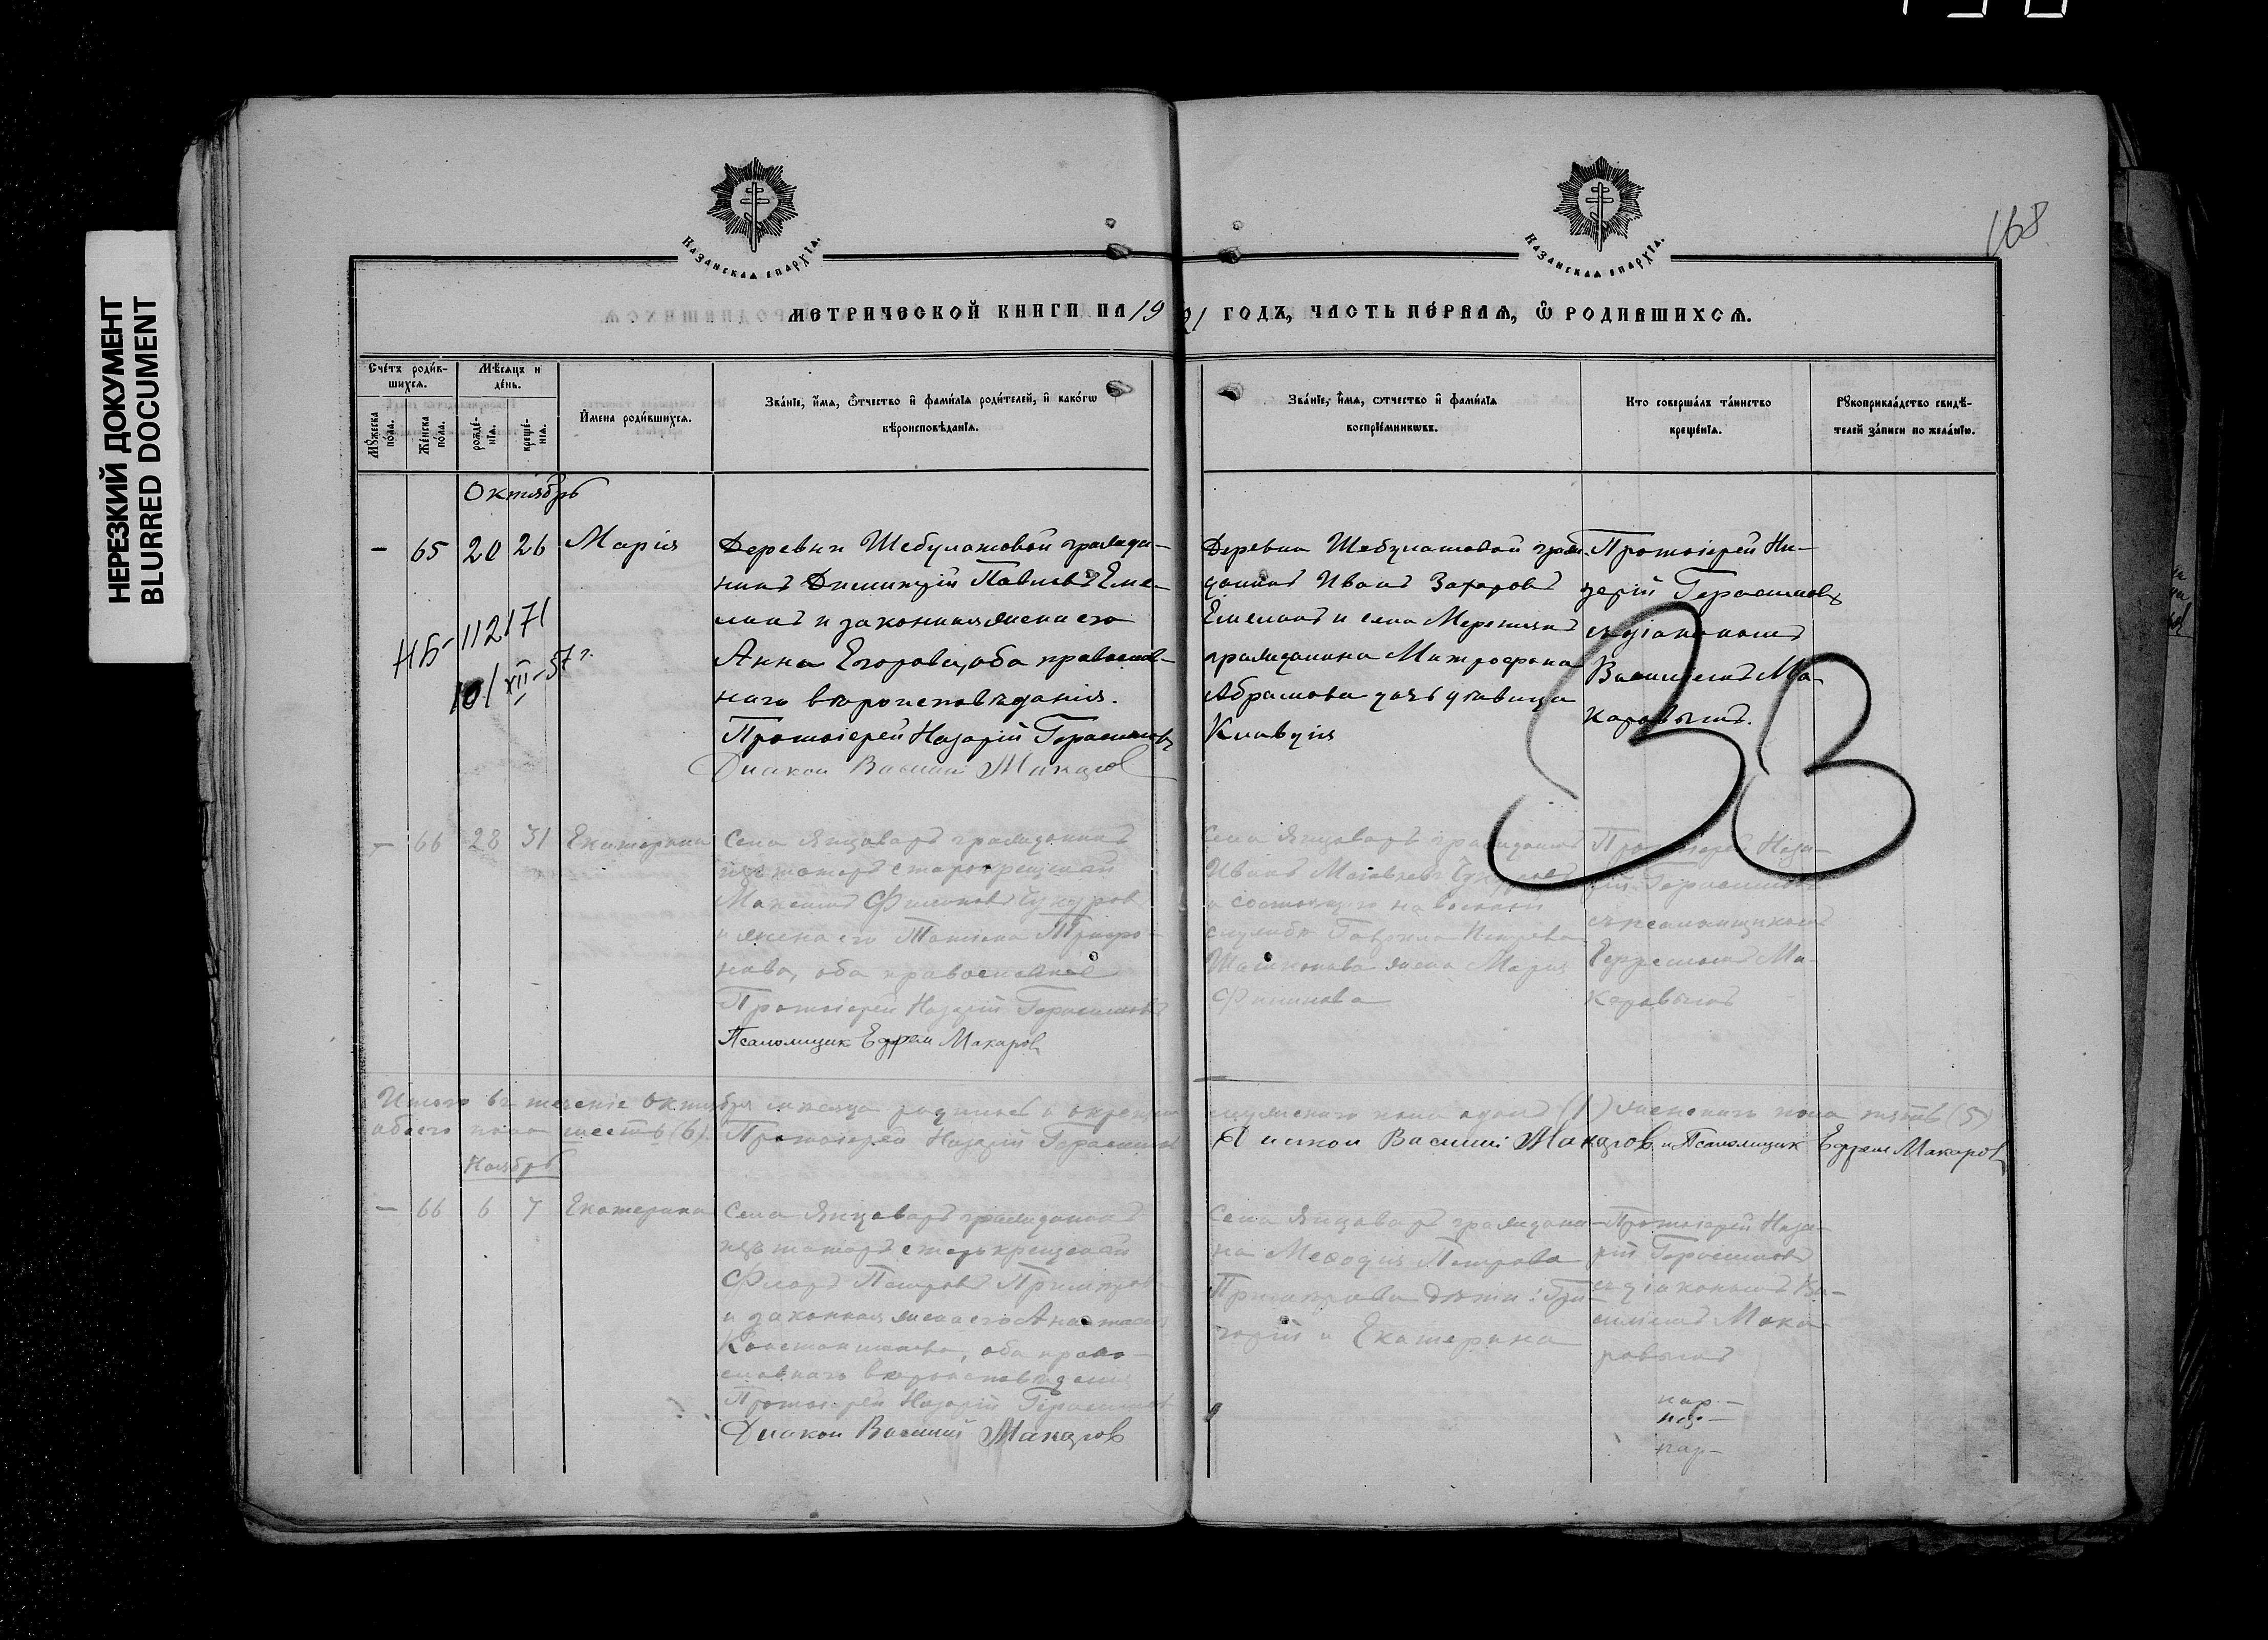 НЕРЕЗКИЙ ДОКУМЕНТ
BLURRED DOCUMENT
168
Казанская епархїѧ.
Казанская епархїѧ.
МЕТРИЧЕСКОЙ КНИГИ НА 1921 ГОДЪ, ЧАСТЬ ПЕРВАЯ, Ѽ РОДИВШИХСѦ.
Счетъ родив-
шихся.
Мѣсяцъ и
день.
Мꙋжеска
пола.
Женска
пола.
рожде-
нїѧ.
креще-
нїѧ.
Имена родившихся.
Званїе, имѧ, ѿчество и фамилїѧ родителей, и какогѡ
вѣроисповѣданїѧ.
Званїе, имѧ, ѿчество и фамилїѧ
воспрїемникѡвъ.
Кто совершалъ таинство
крещенїѧ.
Рꙋкоприкладство свидѣ-
телей записи по желанїю.
Октябрь
— 65 20 26 Марія
Деревни Шебулатовой гражда-
нинъ Димитрій Павловъ Еме-
линъ и законная жена его
Анна Егорова, оба православ-
наго вѣроисповѣданія.
Протоіерей Назарій Герасимовъ
Диакон Василий Макаров
Деревни Шебулатовой граж-
данинъ Иванъ Захаровъ
Емелинъ и села
гражданина Митрофана
Абрамова дочь девица
Клавдія
Протоіерей На-
зарій Герасимовъ
съ діакономъ
Василіемъ Ма-
каровымъ.
НБ-112171
10/XII-57 г.
— 66 28 31 Екатерина
Села Янцоваръ гражданинъ
изъ татаръ старокрещенъ
Максимъ Филиповъ
и жена его Татіана
оба православные
Протоіерей Назарій Герасимовъ
Псаломщик Ефрем Макаров
Села Янцоваръ гражданинъ
Иванъ
и состоящаго на военной
службѣ Гавріила
жена Марія
Филипова
Протоіерей Наза-
рій Герасимовъ
съ псаломщикомъ
Ефремомъ Ма-
каровымъ
Итого въ теченіе октября мѣсяца родилось и окрещено мужескаго пола одинъ (1) женскаго пола пять (5)
обоего пола шесть (6). Протоіерей Назарій Герасимовъ Диакон Василий Макаров и Псаломщик Ефрем Макаров
Ноябрь
— 66 6 7 Екатерина
Села Янцоваръ гражданинъ
изъ татаръ старокрещенъ
Флоръ Петровъ
и законная жена его Анастасія
Константинова, оба право-
славнаго вѣроисповѣданія
Протоіерей Назарій Герасимовъ
Диакон Василий Макаров
Села Янцоваръ граждани-
на Меѳодія Петрова
дѣти: Гри-
горій и Екатерина
Протоіерей Наза-
рій Герасимовъ
съ діакономъ Ва-
силіемъ Мака-
ровымъ